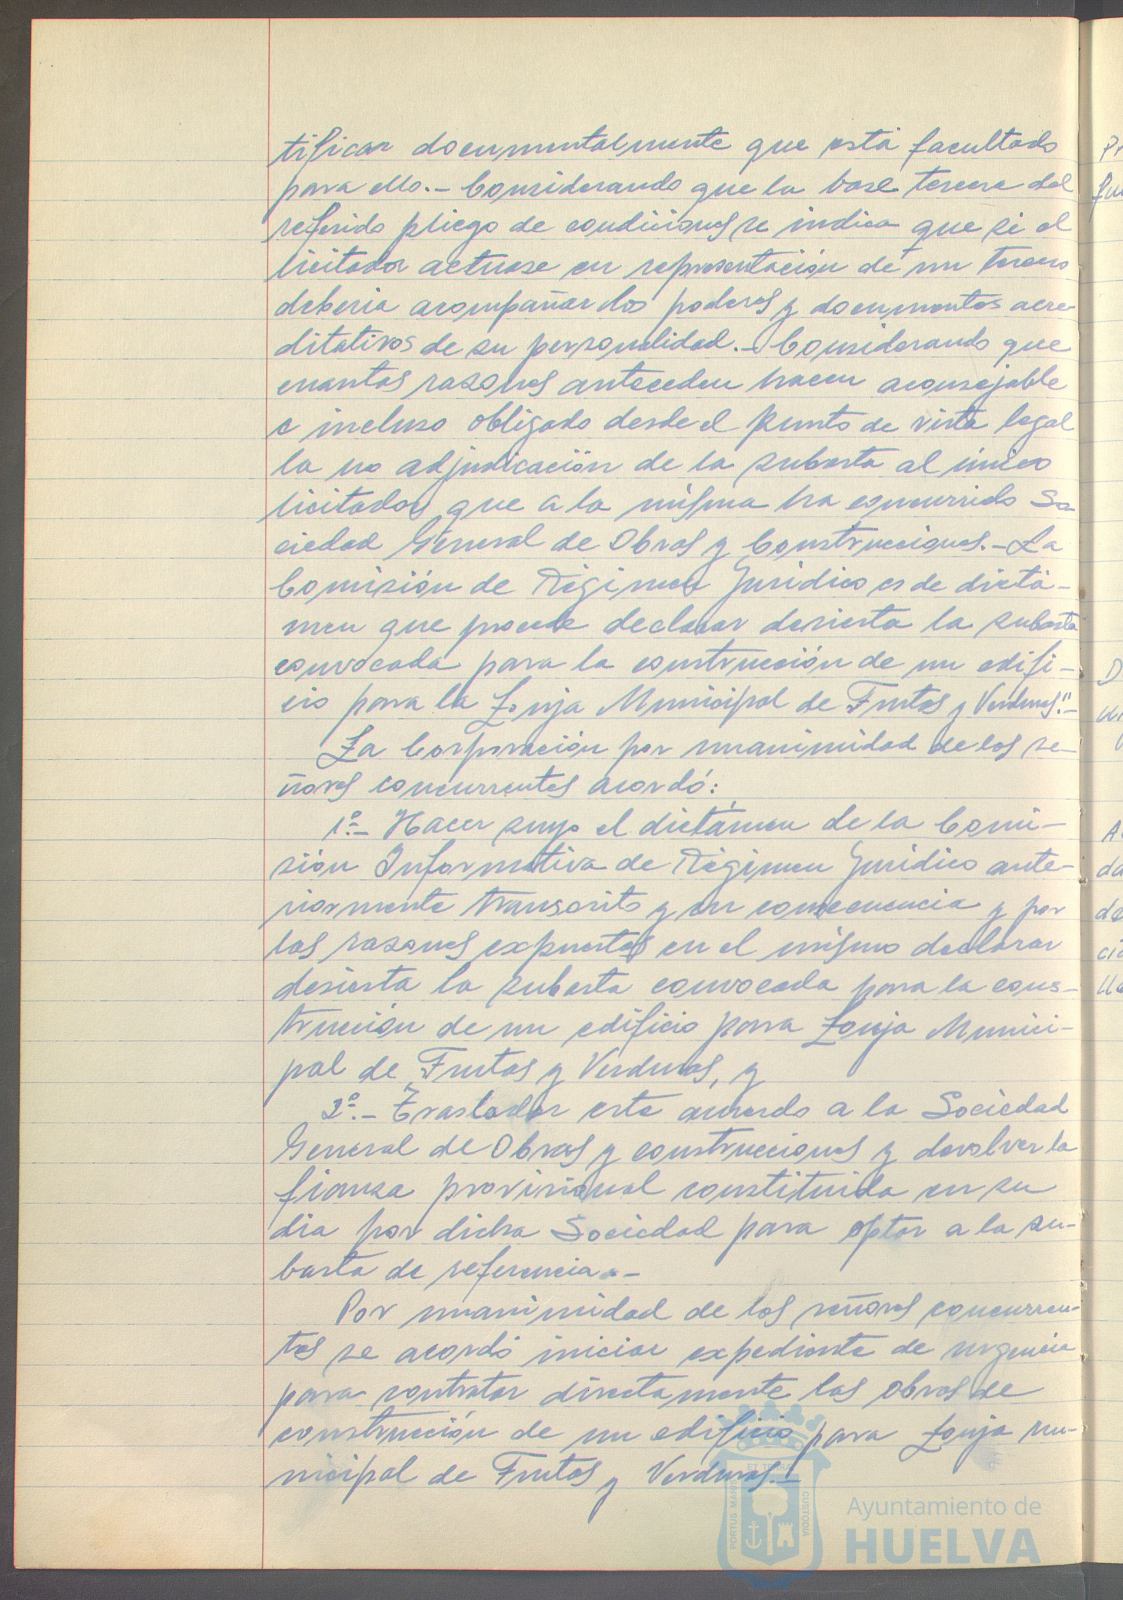 tificar documentalmente que está facultado
para ello.- Considerando que la base tercera del
referido pliego de condiciones se indica que si el
licitador actuase en representación de un tercero
deberia acompañar los poderes y documentos acre-
ditativos de su personalidad.- Considerando que
cuantas razones anteceden hacen aconsejable
e incluso obligado desde el punto de vista legal
la no adjudicación de la subasta al único
licitador que a la misma ha concurrido So-
ciedad General de Obras y Construcciones.- La
Comisión de Régimen Jurídico es de dictá-
men que procede declarar desierta la subasta
convocada para la construcción de un edifi-
cio para la Lonja Municipal de Frutas y Verduras".-
La Corporación por unanimidad de los se-
ñores concurrentes acordó:
1º.- Hacer suyo el dictámen de la Comi-
sión Informativa de Régimen Jurídico ante-
riormente transcrito y en consecuencia y por
las razones expuestas en el mismo declarar
desierta la subasta convocada para la cons-
trucción de un edificio para Lonja Munici-
pal de Frutas y Verduras, y
2º.- Trasladar este acuerdo a la Sociedad
General de Obras y construcciones y devolver la
fianza provisional constituida en su
dia por dicha Sociedad para optar a la su-
basta de referencia.-
Por unanimidad de los señores concurren-
tes se acordó iniciar expediente de urgencia
para contratar directamente las obras de
construcción de un edificio para Lonja mu-
nicipal de Frutas y Verduras.-
PORTUS MARIS ET TERRAE CUSTODIA
Ayuntamiento de
HUELVA